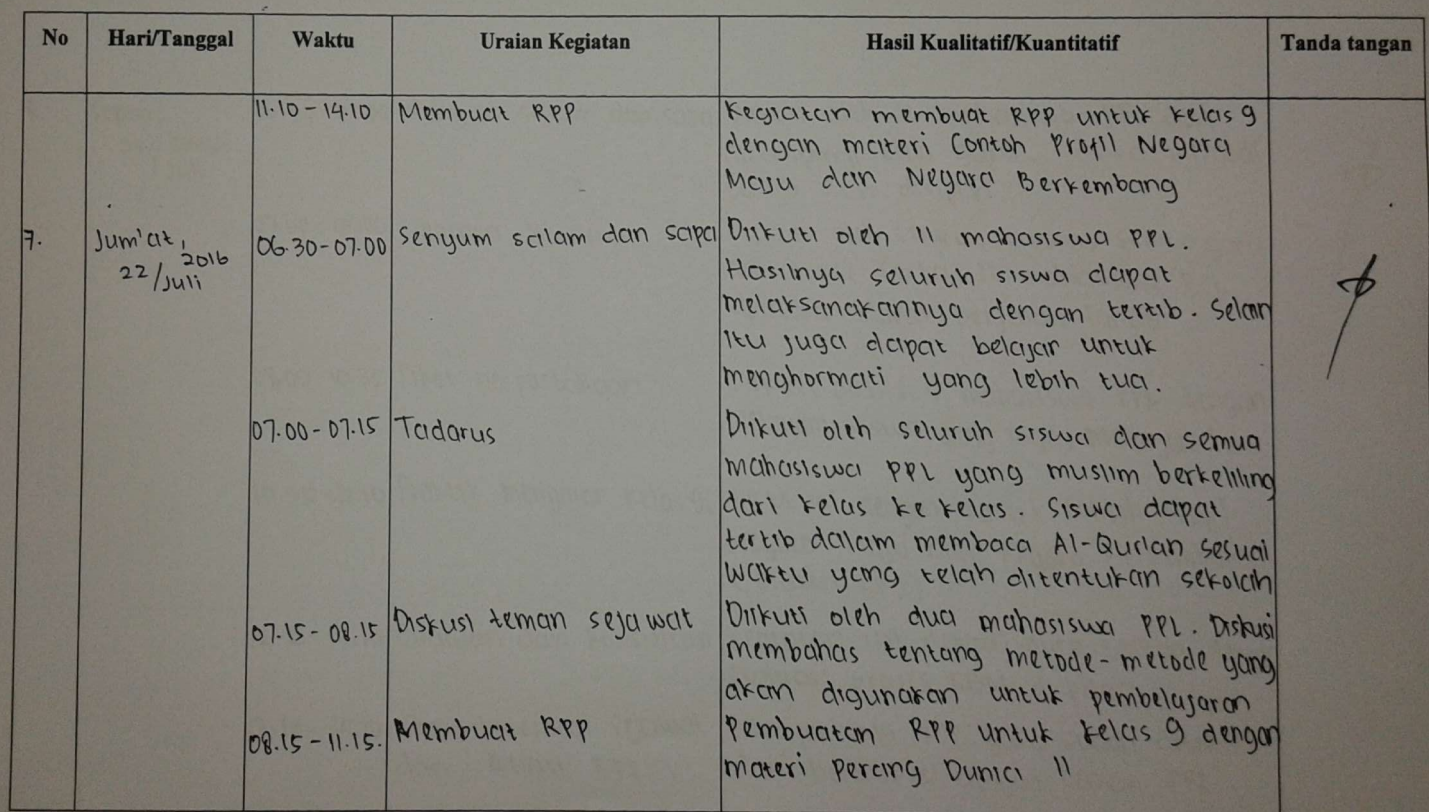 No Hari/Tanggal Waktu Uraian Kegiatan Hasil Kualitatif/Kuantitatif Tanda tangan
11.10 - 14.10 Membuat RPP Kegiatan membuat RPP untuk kelas 9
dengan materi Contoh Profil Negara
Maju dan Negara Berkembang
7. Jum'at, 06.30-07.00 Senyum salam dan sapa Diikuti oleh 11 mahasiswa PPL.
22/Juli 2016 Hasilnya seluruh siswa dapat
melaksanakannya dengan tertib. Selain
itu juga dapat belajar untuk
menghormati yang lebih tua.
07.00 - 07.15 Tadarus Diikuti oleh seluruh siswa dan semua
mahasiswa PPL yang muslim berkeliling
dari kelas ke kelas. Siswa dapat
tertib dalam membaca Al-Qur'an sesuai
waktu yang telah ditentukan sekolah
07.15 - 08.15 Diskusi teman sejawat Diikuti oleh dua mahasiswa PPL. Diskusi
membahas tentang metode-metode yang
akan digunakan untuk pembelajaran
08.15 - 11.15. Membuat RPP Pembuatan RPP untuk kelas 9 dengan
materi Perang Dunia II